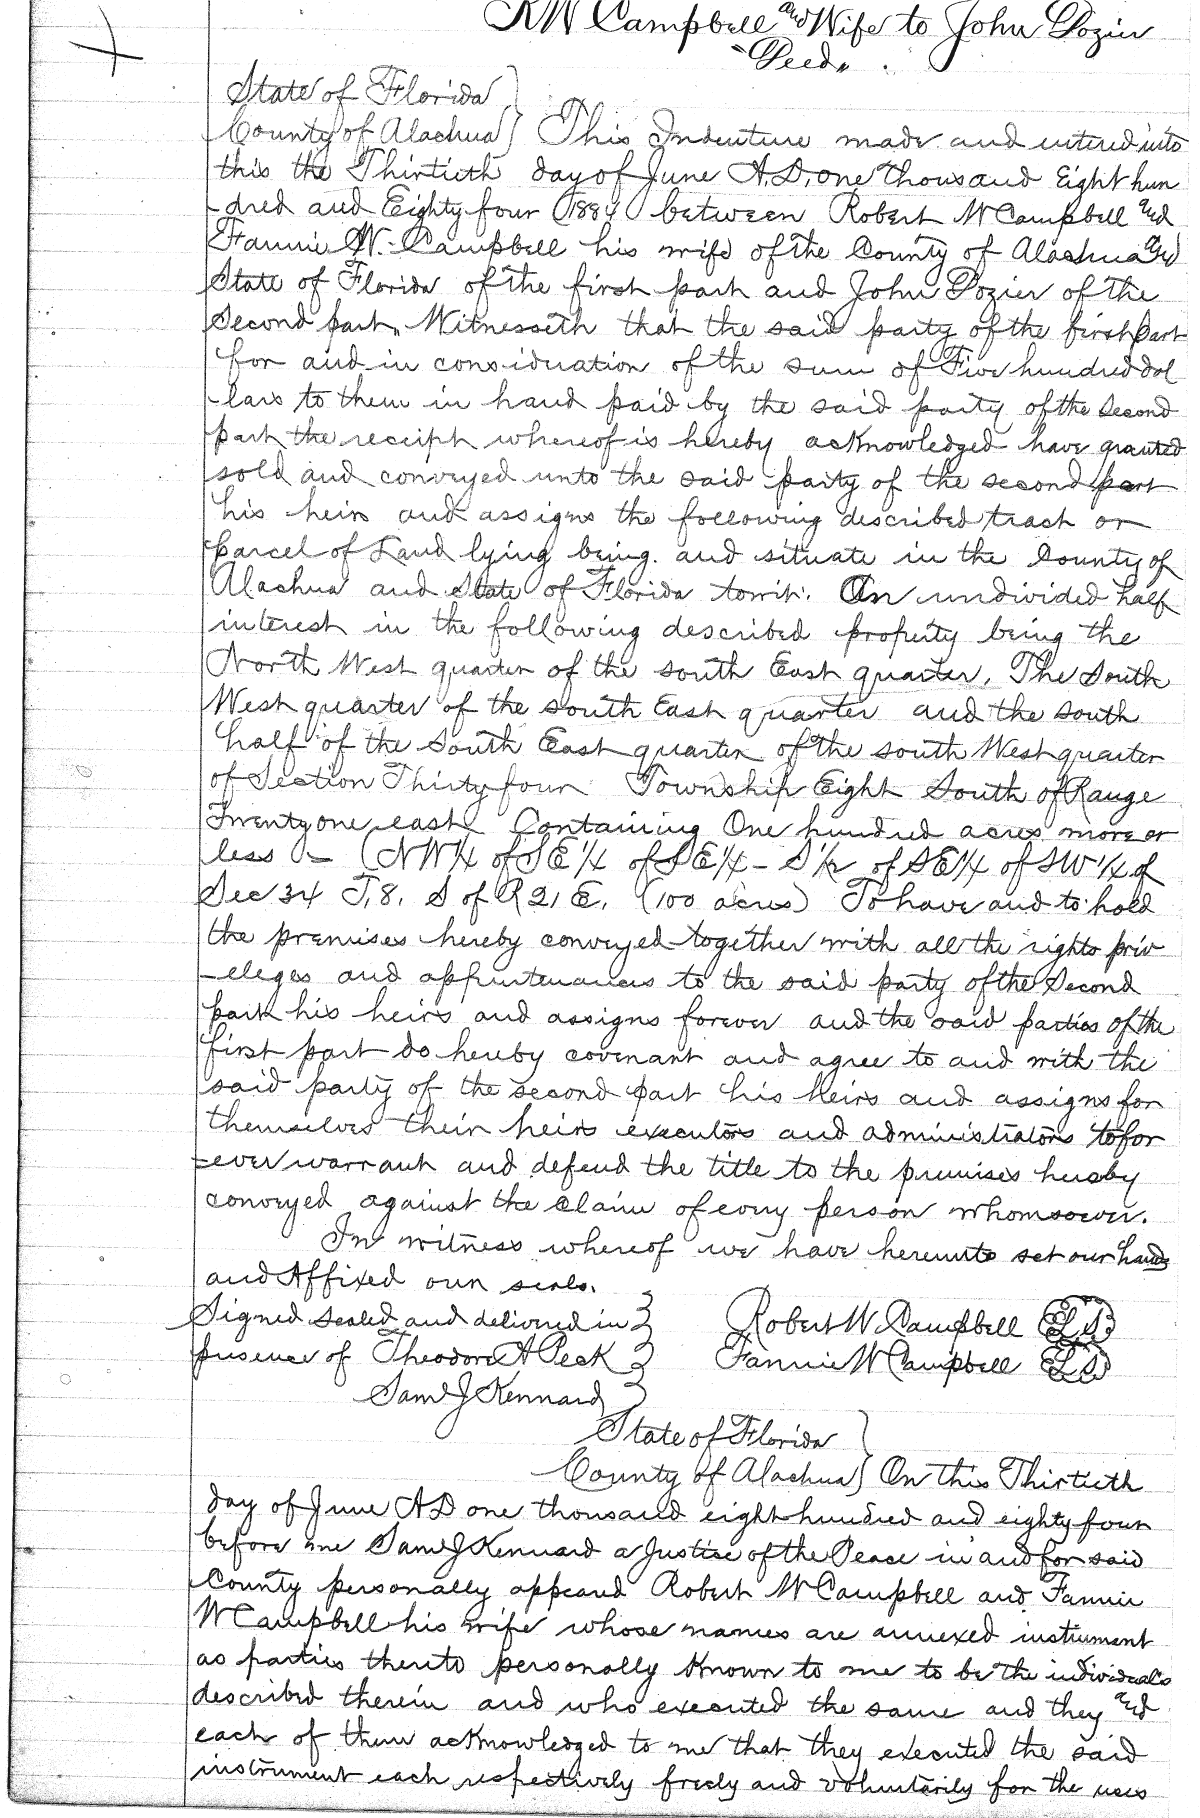 RW Campbell and Wife to John Dozier
"Deed".
State of Florida }
County of Alachua } This Indenture made and entered into
this the Thirtieth day of June A.D. one thousand Eight hun
-dred and Eighty four (1884) between Robert W Campbell and
Fannie W. Campbell his wife of the County of Alachua and
State of Florida of the first part and John Dozier of the
Second part, Witnesseth that the said party of the first part
for and in consideration of the sum of Five hundred dol
-lars to them in hand paid by the said party of the Second
part the receipt whereof is hereby acknowledged have granted
sold and conveyed unto the said party of the second part
his heirs and assigns the following described tract or
parcel of Land lying being and situate in the County of
Alachua and State of Florida towit. An undivided half
interest in the following described property being the
North West quarter of the south East quarter, The South
West quarter of the south East quarter and the south
half of the South East quarter of the south West quarter
of Section Thirty four Township Eight South of Range
Twenty one east Containing One hundred acres more or
less - (NW¼ of SE¼ of SE¼ - S½ of SE¼ of SW¼ of
Sec 34 T.8. S of R 21 E. (100 acres) To have and to hold
the premises hereby conveyed together with all the rights priv
-eleges and appurtenances to the said party of the Second
part his heirs and assigns forever and the said parties of the
first part do hereby covenant and agree to and with the
said party of the second part his heirs and assigns for
themselves their heirs executors and administrators to for
-ever warrant and defend the title to the premises hereby
conveyed against the claim of every person whomsoever.
In witness whereof we have hereunto set our hands
and Affixed our seals.
Signed sealed and delivered in } Robert W. Campbell L.S.
presence of Theodore A Peck } Fannie W Campbell L.S.
Saml J Kennard }
State of Florida }
County of Alachua } On this Thirtieth
day of June A D one thousand eight hundred and eighty four
before me Saml J Kennard a Justice of the Peace in and for said
County personally appeard Robert W Campbell and Fannie
W Campbell his wife whose names are annexed instrument
as parties thereto personally known to me to be the individuals
described therein and who executed the same and they and
each of them acknowledged to me that they executed the said
instrument each respectively freely and voluntarily for the uses